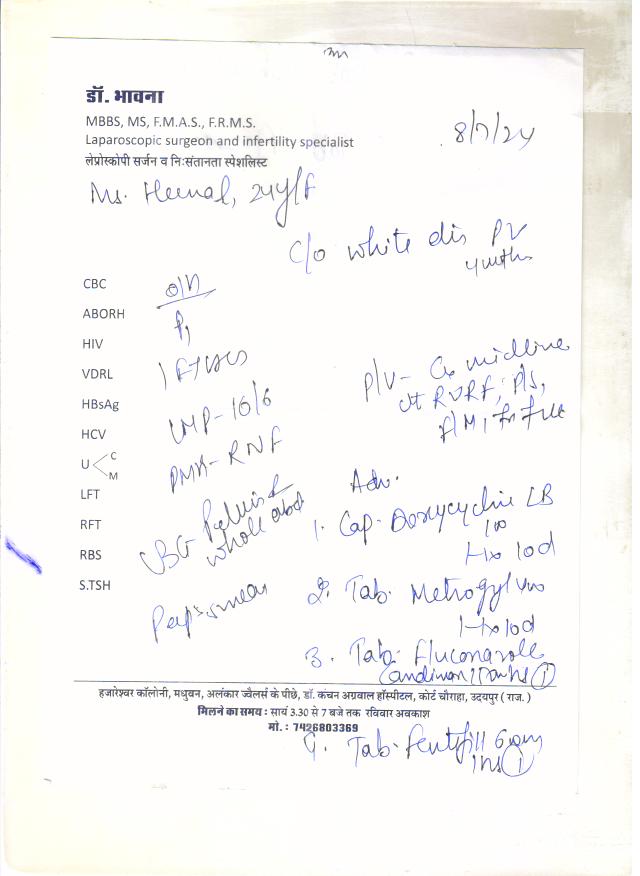 डॉ. भावना
MBBS, MS, F.M.A.S., F.R.M.S.
Laparoscopic surgeon and infertility specialist
लेप्रोस्कोपी सर्जन व निःसंतानता स्पेशलिस्ट
8/7/24
Ms. Heenal, 24y/F
C/o white dis PV
4 mths
CBC
ABORH
HIV
VDRL
HBsAg
HCV
U C
M
LFT
RFT
RBS
S.TSH
O/H
P1
LMP - 16/6
PMH - RNF
P/V - Cx midline
Ut RVRF, P/S,
F/M, Fx Free
USG Pelvis &
whole abd
Pap smear
Adv.
1. Cap. Doxycycline LB
100
1-1 x 10d
2. Tab. Metrogyl 400
1-1 x 10d
3. Tab. Fluconazole
हजारेश्वर कॉलोनी, मधुवन, अलंकार ज्वैलर्स के पीछे, डॉ. कंचन अग्रवाल हॉस्पीटल, कोर्ट चौराहा, उदयपुर ( राज. )
मिलने का समय : सायं 3.30 से 7 बजे तक रविवार अवकाश
मो. : 7426803369
Tab.